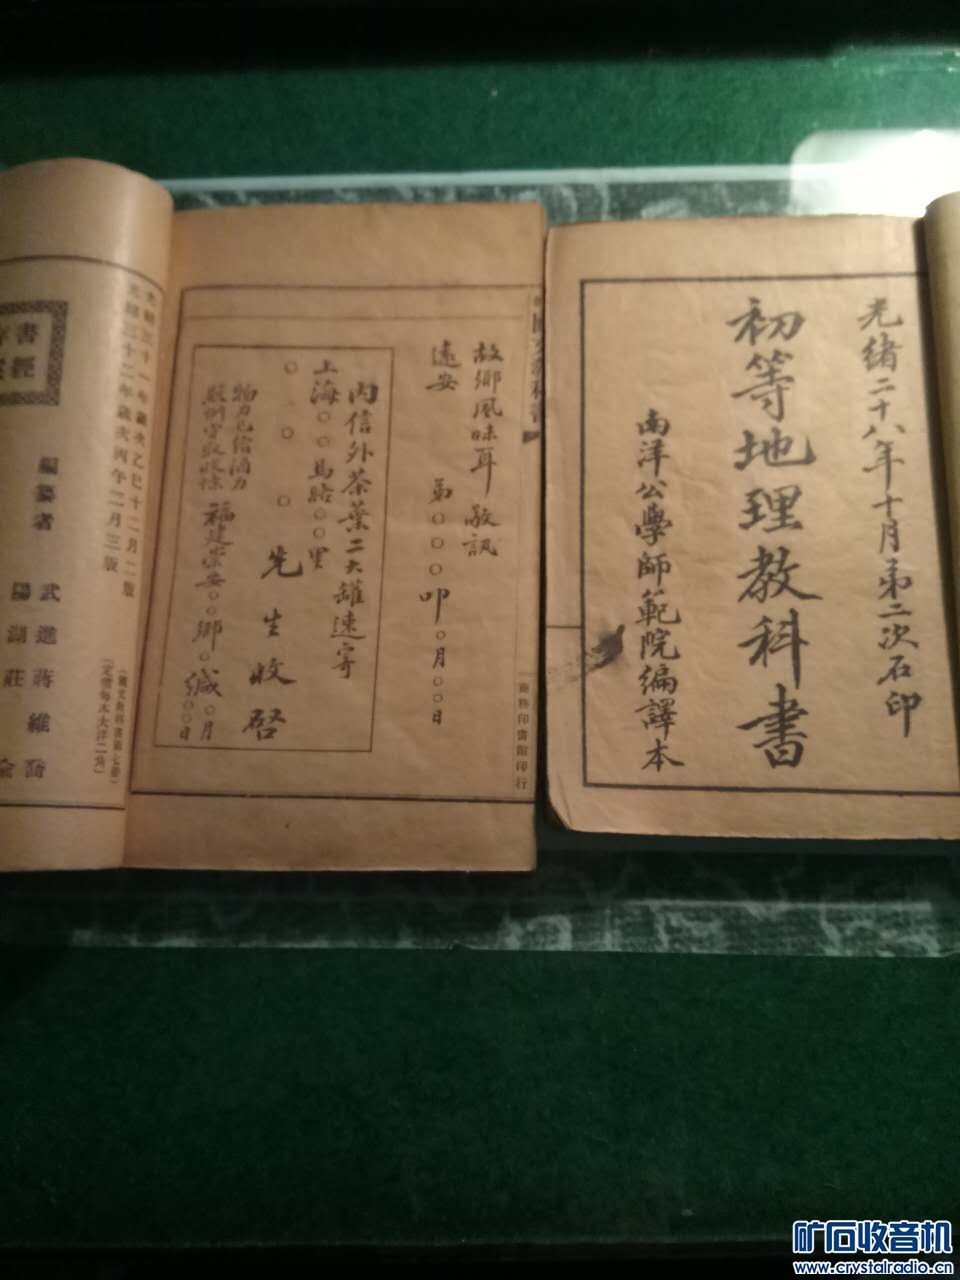 光緒二十八年十月第二次石印
初等地理教科書
南洋公學師範院編譯本
故鄉風味耳 敬訊
遠安
弟○○○叩 ○月○○日
內信外茶葉二大罐速寄
上海○○馬路○○里
○○○先生收啓
福建崇安○○鄉○緘
○月○○日
商務印書館印行
光緒三十一年歲次乙巳十二月二版
光緒三十二年歲次丙午二月三版
(國文教科書第七冊)
(定價每本大洋二角)
編纂者
武進蔣維喬
陽湖莊俞
書
經
矿石收音机
www.crystalradio.cn